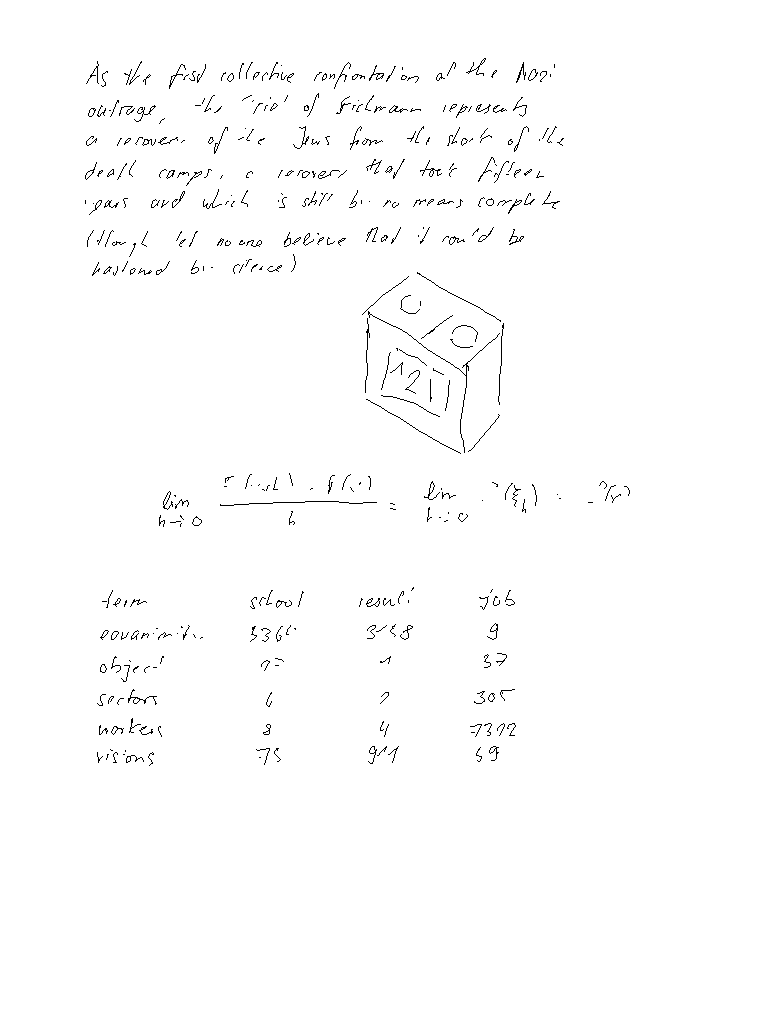 As the first collective confrontation of the Nazi
outrage, the trial of Eichmann represents
a recovery of the Jews from the shock of the
death camps, a recovery that took fifteen
years and which is still by no means complete
(though let no one believe that it could be
hastened by silence)
121
lim h→0 h = lim h→0
term school result job
equanimity 9
object 1 37
sectors 6 305
workers 8 4
visions 75 911 59